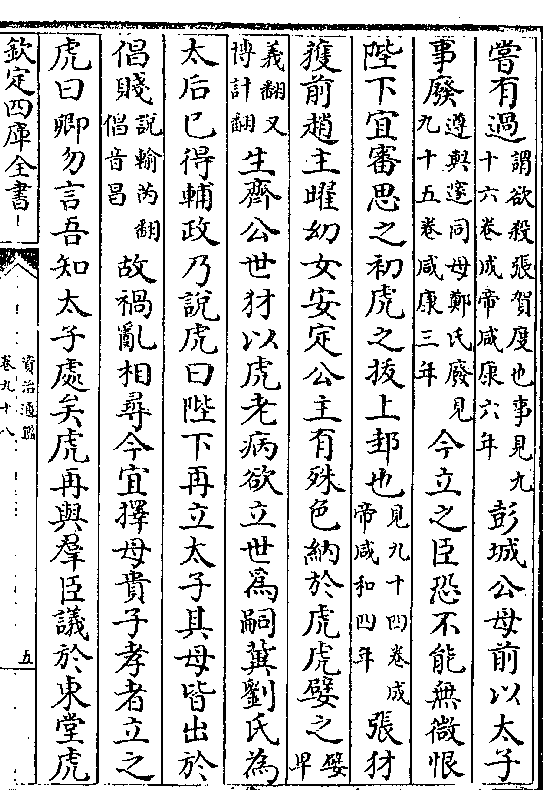 嘗有過謂欲殺張賀度也事見九十六卷成帝咸康六年彭城公母前以太子
事廢遵與邃同母鄭氏廢見九十五卷咸康三年今立之臣恐不能無微恨
陛下宜審思之初虎之拔上邽也見九十四卷成帝咸和四年張豺
獲前趙主曜幼女安定公主有殊色納於虎虎嬖之嬖卑
義翻又博計翻生齊公世豺以虎老病欲立世爲嗣冀劉氏為
太后已得輔政乃說虎曰陛下再立太子其母皆出於
倡賤說輸芮翻倡音昌故禍亂相尋今宜擇母貴子孝者立之
虎曰卿勿言吾知太子處矣虎再與羣臣議於東堂虎
欽定四庫全書
資治通鑑
卷九十八
五